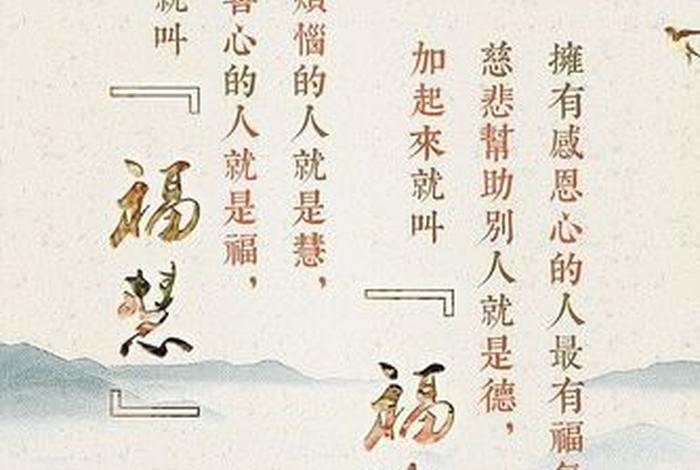 擁有感恩心的人最有福
慈悲幫助別人就是德，
加起來就叫
『福
惱的人就是慧，
心的人就是福，
就叫
『福慧』